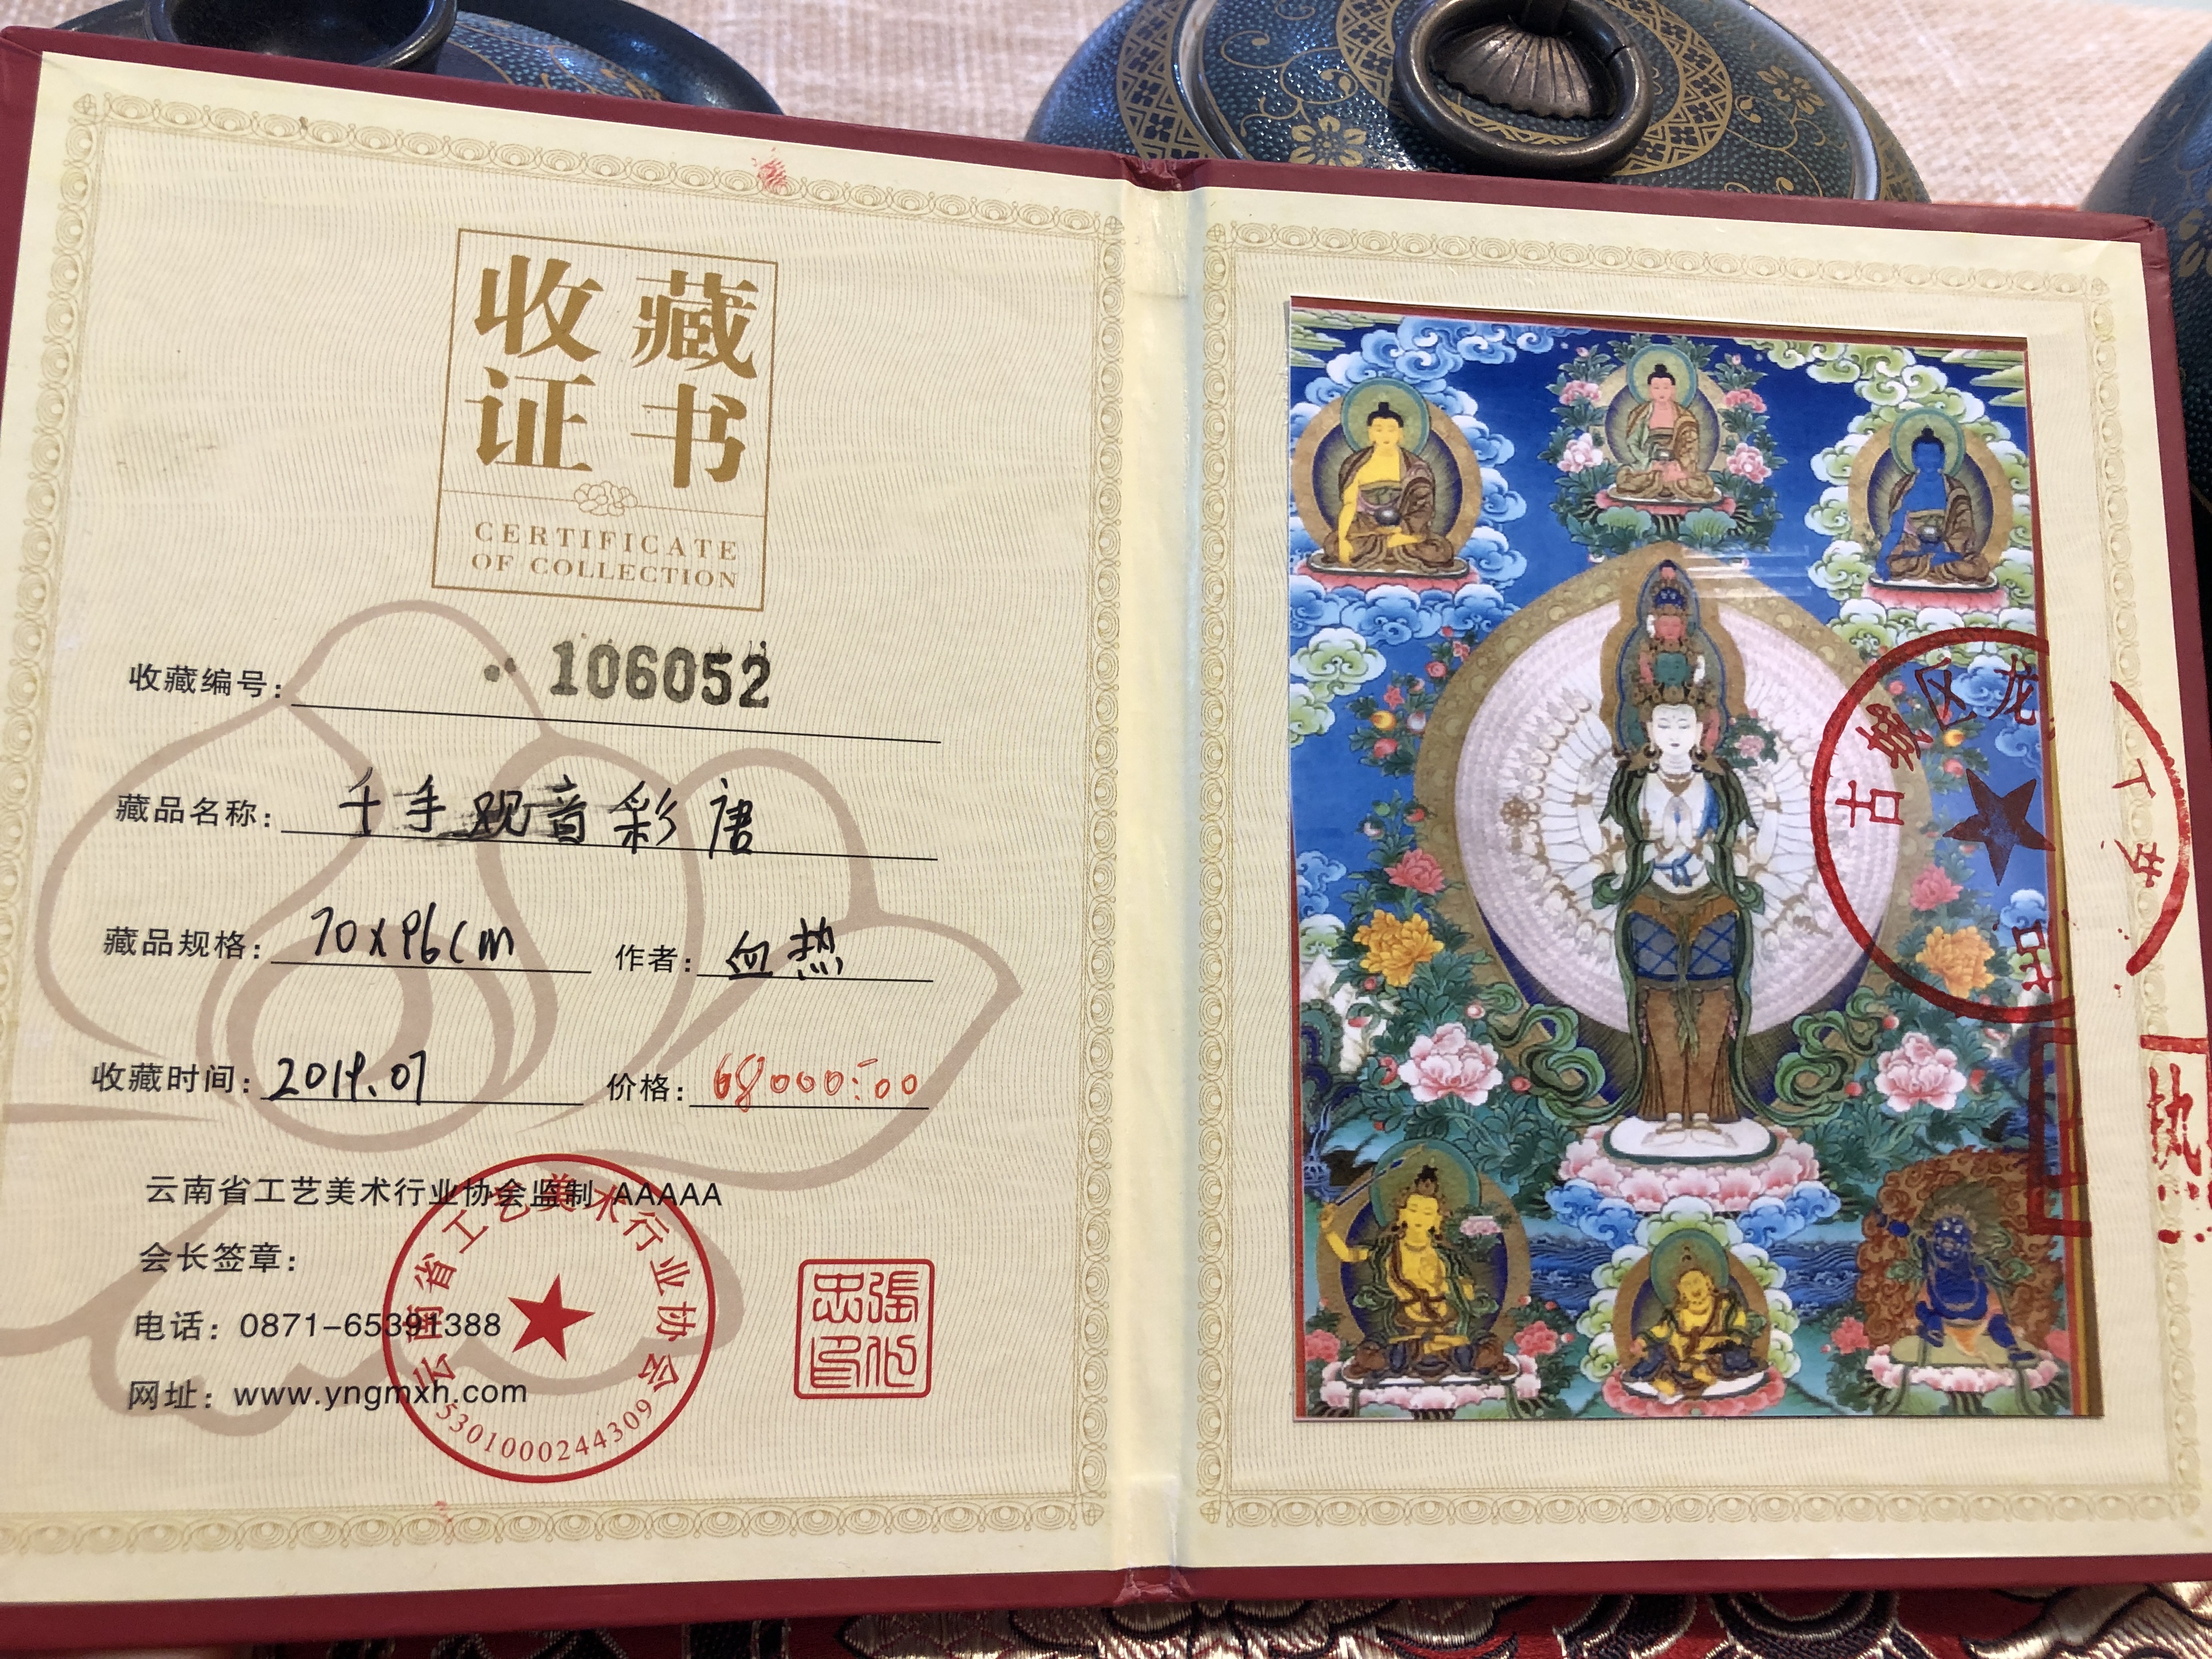 收藏
证书
CERTIFICATE
OF COLLECTION
收藏编号: 106052
藏品名称: 千手观音彩唐
藏品规格: 70x96cm 作者: 血热
收藏时间: 2019.07 价格: 68000:00
云南省工艺美术行业协会监制 AAAAA
会长签章:
电话: 0871-65391388
网址: www.yngmxh.com
云南省工艺美术行业协会
5301000244309
古城区龙